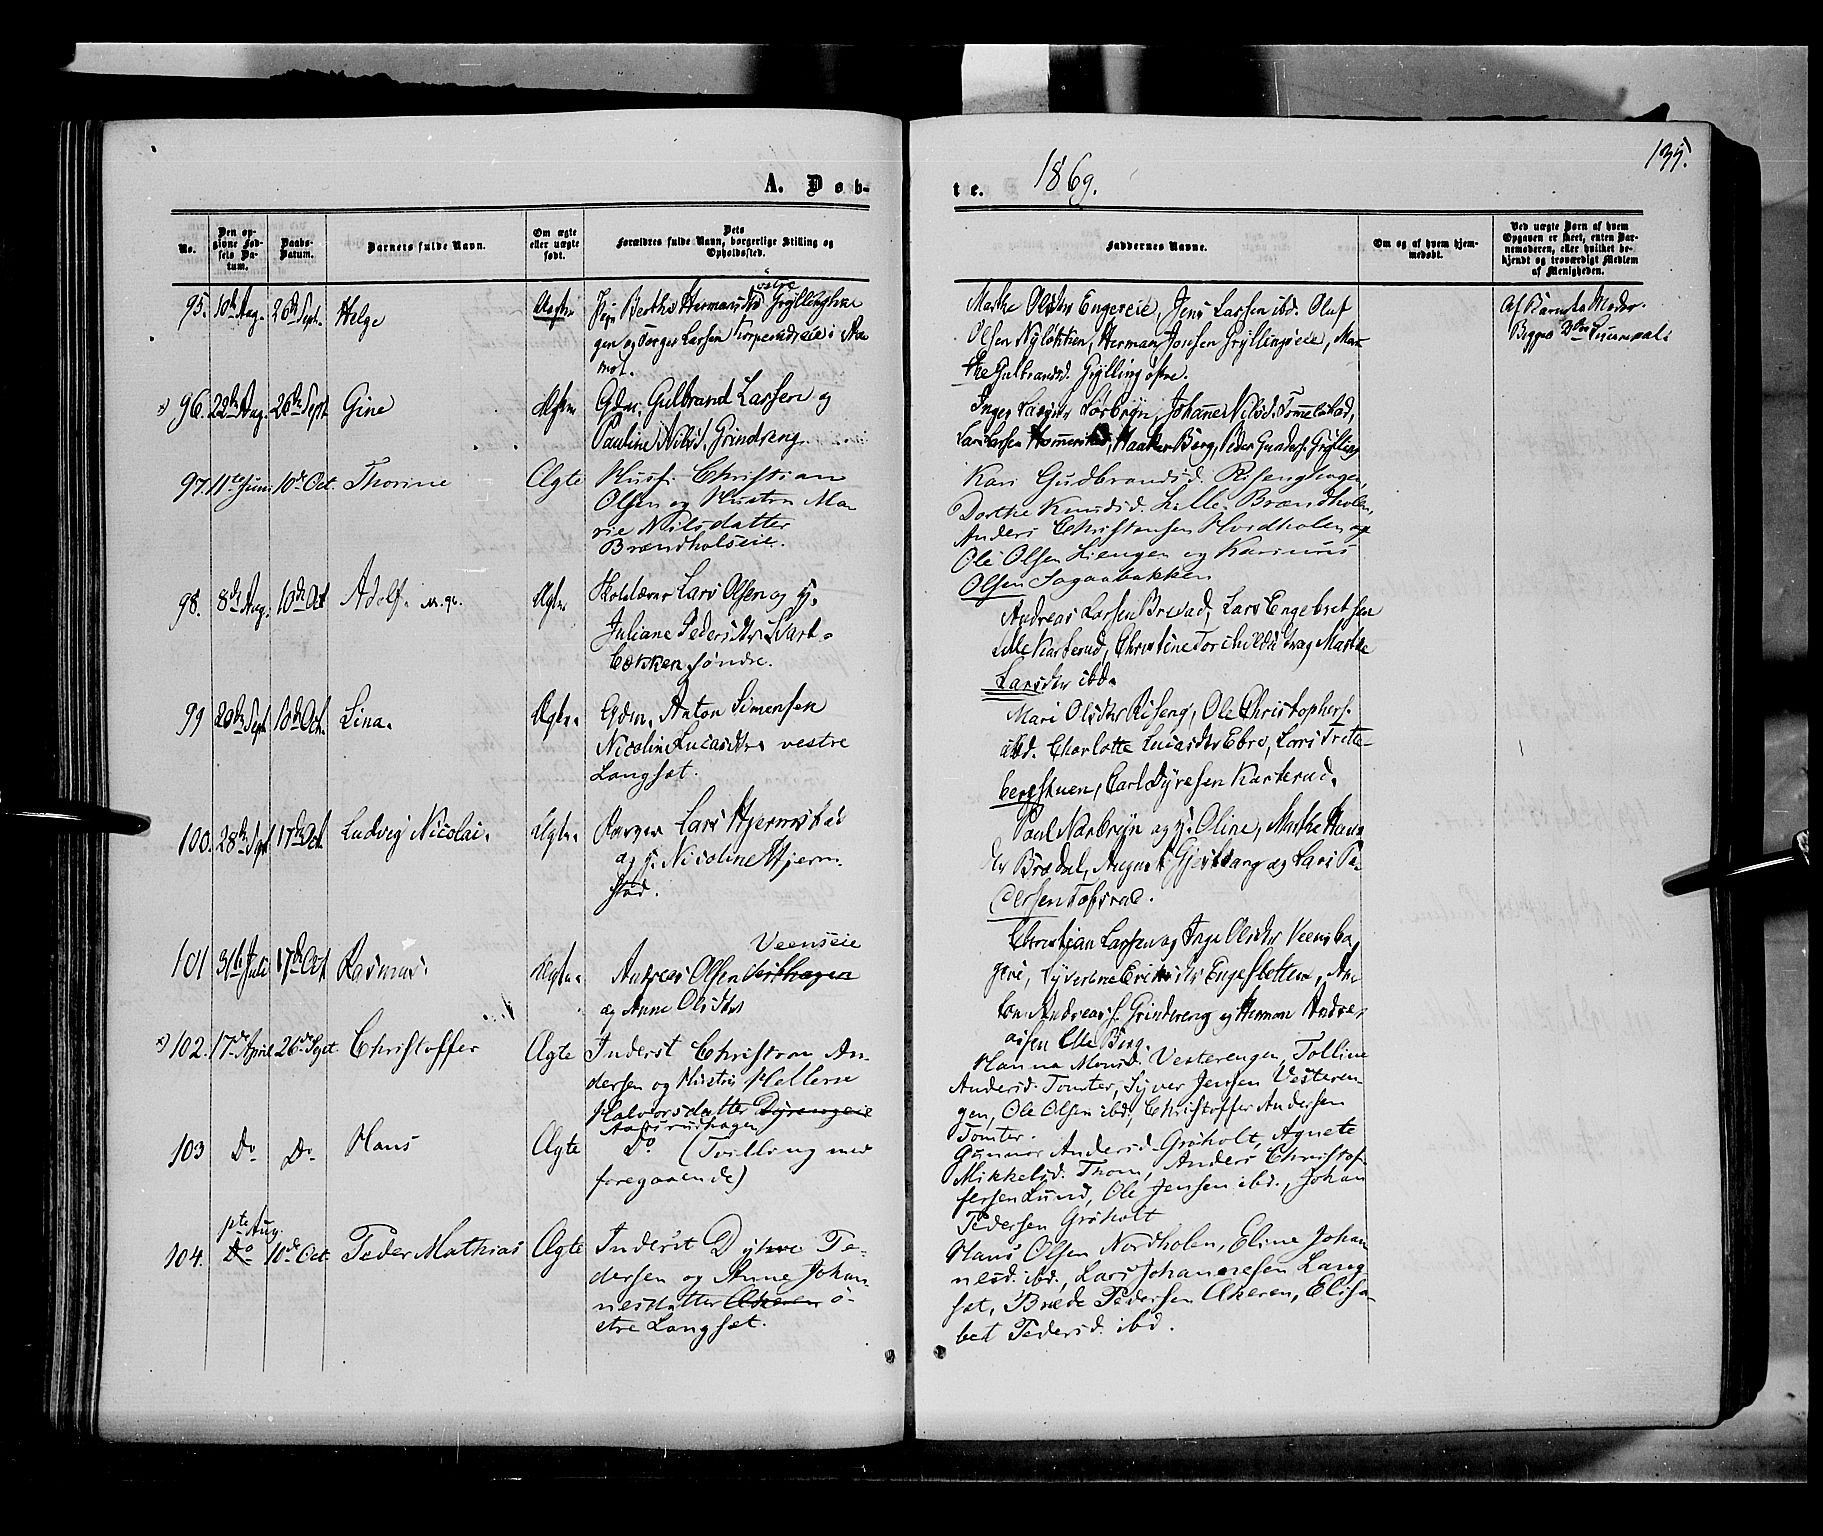 135.
1869.
A. Døb-
te.
No.
Den op-
givne Fød-
sels Da-
tum.
Daabs-
Datum.
Barnets fulde Navn.
Om ægte
eller uægte
født.
Dets
Forældres fulde Navn, borgerlige Stilling og
Opholdssted.
Faddernes Navne.
Om og af hvem hjem-
medøbt.
Ved uægte Børn af hvem
Opgaven er skeet, enten Bar-
nemoderen, eller hvilket be-
kjendt og troværdigt Medlem
af Menigheden.
95. 10de Aug. 26de Sept. Helge
Pige Berthe Hermansd.
østre
gen og Torger Larsen
mot.
Marthe Olsdtr Engereie, Jens Larsen ibd. Oluf
Olsen Nyløkken, Herman Jonsen Gryllingseie, Mar-
the Gulbrandsd. Grylling østre.
Af Barnets Moder.
Begges
96. 22de Aug. 26de Sept. Gine Ægte Gdm. Gulbrand Larsen og
Pauline Nilsd. Grindreng.
Johannes Nilsd. Tommelstad,
Lars Larsen Haaken Berg, Peder Gunders. Grylling
97. 11te Juni 10de Oct. Thorine Ægte Husf. Christian
Olsen og Hustru Ma
rie Nilsdatter
Brændholseie.
Kari Gudbrandsd. Risenghagen,
Dorthe Knudsd. Lille Brændholen,
Anders Christensen Nordholen og
Ole Olsen Liengen og Karinus
Olsen Sagaabakken
98. 8de Aug. 10de Oct. Adolf. Ægte Lars Olsen og h.
Juliane Pedersdtr Svart-
bækken søndre.
Andreas Larsen Lars Engebretsen
Lille Karterud, Christine og Marthe
Larsdtr ibd.
99 20de Sept. 10de Oct. Lina. Ægte. Gdm. Anton Simensen
Nicoline Lucasdtr vestre
Langset.
Mari Olsdtr Riseng, Ole Christophers.
ibd. Charlotte Lucasdtr Ebro, Lars Sæte-
bergstuen, Carl Dyresen Karterud.
100. 28de Sept. 17de Oct. Ludvig Nicolai. Ægte. Lars Hjernstad
og h. Nicoline Hjern-
stad.
Paul Nordbryn og h. Oline, Marthe
August Gjestvang og Lars Pe-
dersen
101 31te Juli 17de Oct. Rasmus. Ægte. Andreas Olsen
Veenseie
og Anne Olsdtr
Christian Larsen og Inge Olsdtr Veensha
gen, Syverine Ericksdtr Engesletten, An-
ton Andreas s. Grindereng og Herman Andre-
asen Lille Berg.
102. 17de April 26de Sept. Christoffer Ægte Inderst Christian An-
dersen og Hustru Hellene
Halvorsdatter Dyrengeie
Hanna Monsd. Vesterengen, Tolline
Andersd. Tomter, Syver Jensen Vesteren-
gen, Ole Olsen ibd, Christoffer Andersen
Tomter.
103 Do Do Hans Ægte Do (Tvilling med
foregaaende)
Gunnor Andersd. Grøholt, Agnete
Mikkelsd. Thom, Anders Christof-
fersen Lund, Ole Jensen ibd., Johan
Pedersen Grøholt
1ste Aug.
104. Do 10de Oct. Peder Mathias Ægte Inderst Dyhre Pe-
dersen og Anne Johan-
nesdatter Akeren ø-
stre Langset.
Hans Olsen Nordholen, Eline Johan
nesd. ibd., Lars Johannesen Lang
set, Brede Pedersen Akeren, Elisa-
bet Pedersd. ibd.